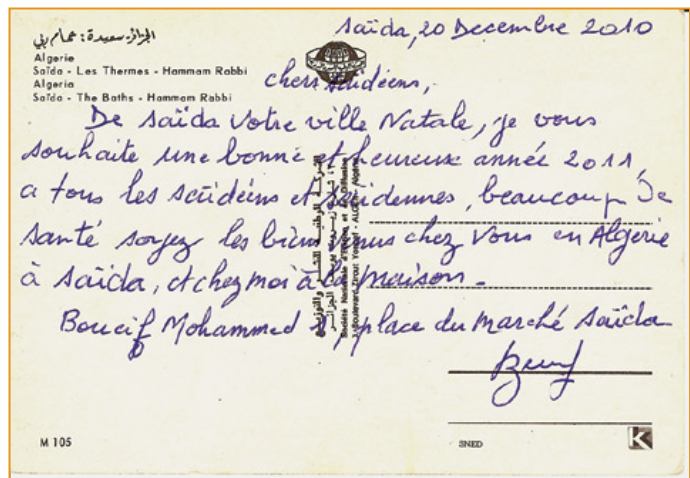 الجزائر - سعيدة : حمام ربي
Algerie
Saïda - Les Thermes - Hammam Rabbi
Algeria
Saïda - The Baths - Hammam Rabbi
Saïda, 20 Decembre 2010
chers saidéens,
De Saïda votre ville Natale, je vous
souhaite une bonne et heureux année 2011,
a tous les saïdéins et saïdennes, beaucoup de
santé soyez les bien venus chez vous en Algerie
à saïda, et chez moi à la maison.
Boucif Mohammed place du marché Saïda
Société Nationale d'Edition et de Diffusion
3, boulevard Zirout Youcef - ALGER - Algérie
M 105
SNED
K